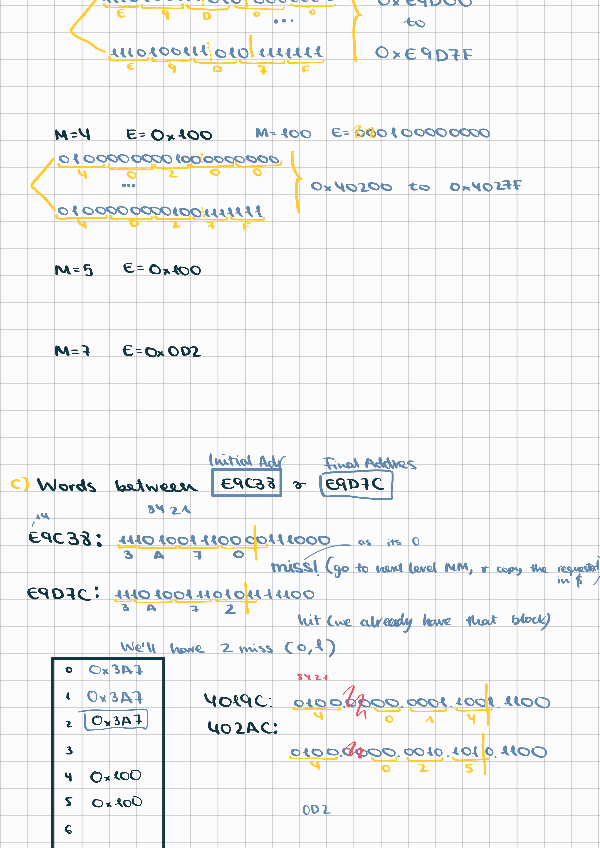 0xE9D00
E 9 D 0 0
...
to
1110100111 010 1111111
E 9 D 7 F
0xE9D7F
M=4 E=0x100 M=100 E=000100000000
01000000001000000000
4 0 2 0 0
...
0x40200 to 0x4027F
01000000001001111111
4 0 2 7 F
M=5 E=0x100
M=7 E=0x0D2
Initial Adr Final Address
c) Words between E9C38 & E9D7C
14 8421
E9C38: 11101001110000111000 as its 0
3 A 7 0
miss! (go to next level MM, & copy the requested
in $)
E9D7C: 11101001110101111100
3 A 7 2
hit (we already have that block)
We'll have 2 miss (0,1)
8421
0 0x3A7
1 0x3A7
2 0x3A7
3
4 0x100
5 0x100
6
4019C: 0100.0000.0001.1001.1100
4 0 1 4
402AC:
0100.0000.0010.1010.1100
4 0 2 5
0D2